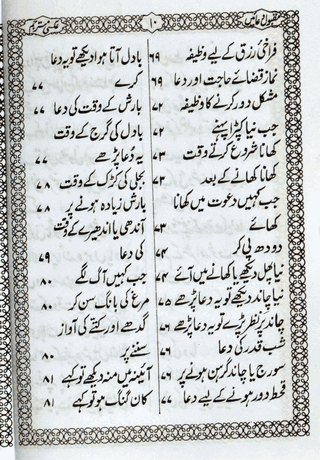 مقبول دعائیں
۱۰
عکسی مترجم
فراخیٔ رزق کے لیے وظیفہ ۶۹
نمازِ قضائے حاجت اور دعا ۶۹
مشکل دور کرنے کا وظیفہ ۷۲
جب نیا کپڑا پہنے ۷۲
کھانا شروع کرتے وقت ۷۳
کھانا کھانے کے بعد ۷۳
جب کہیں دعوت میں کھانا
کھائے ۷۳
دودھ پی کر ۷۴
نیا پھل دیکھے یا کھانے میں آئے ۷۴
نیا چاند دیکھے تو یہ دعا پڑھے ۷۵
چاند پر نظر پڑے تو یہ دعا پڑھے ۷۶
شب قدر کی دعا ۷۶
سورج یا چاند گرہن ہونے پر ۷۶
قحط دور ہونے کے لیے دعا ۷۷
بادل آتا ہوا دیکھے تو یہ دعا
کرے ۷۷
بارش کے وقت کی دعا ۷۷
بادل کی گرج کے وقت
یہ دُعا پڑھے ۷۷
بجلی کی کڑک کے وقت ۷۸
بارش زیادہ ہونے پر ۷۸
آندھی یا اندھیرے کے وقت
کی دعا ۷۹
جب کہیں آگ لگے ۸۰
مرغ کی بانگ سن کر ۸۰
گدھے اور کتے کی آواز
سننے پر ۸۰
آئینہ میں منہ دیکھے تو کہے ۸۱
کان گنگ ہو تو کہے ۸۱